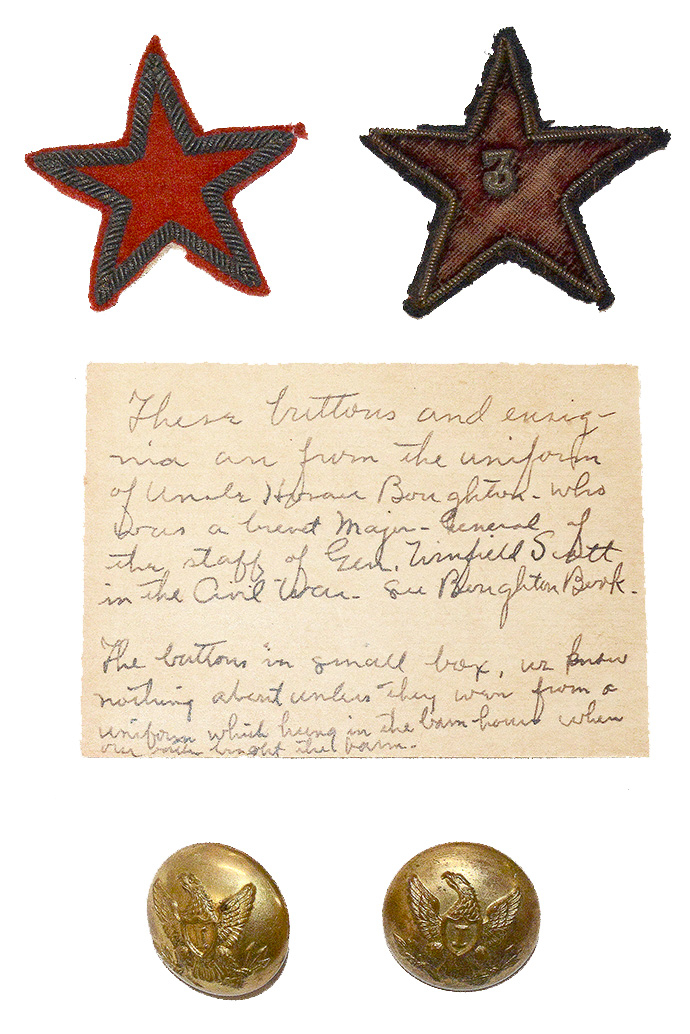 3
These buttons and ensig-
nia are from the uniform
of Uncle Horace Boughton - who
was a brevet Major-General of
the staff of Gen. Winfield Scott
in the Civil War - see Boughton Book.
The buttons in small box, we know
nothing about unless they were from a
uniform which hung in the barn house when
our bought the farm.
I
I